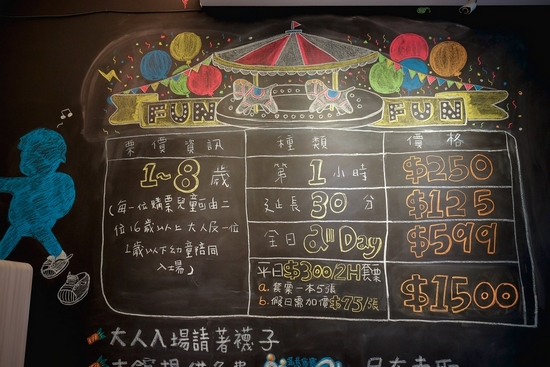 FUN FUN
票價資訊 種類 價格
1~8歲
(每一位購票兒童可由二
位16歲以上大人及一位
1歲以下幼童陪同
入場)
第1小時 $250
延長30分 $125
全日 all Day $599
平日$300/2H套票
a. 套票一本5張
b. 假日需加價$75/張
$1500
大人入場請著襪子